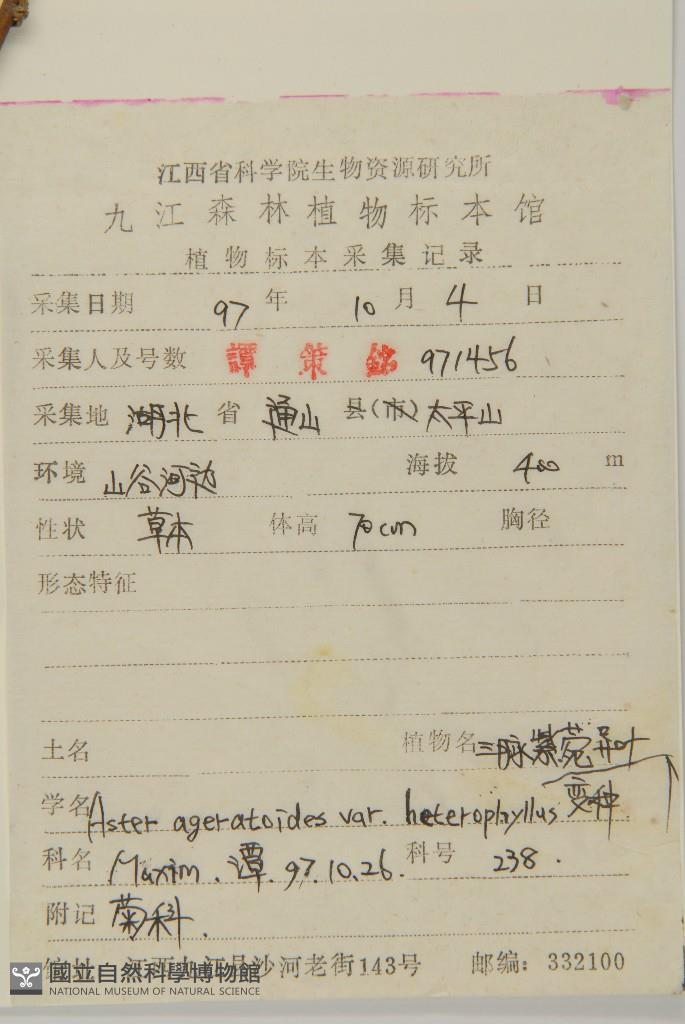 江西省科学院生物资源研究所
九江森林植物标本馆
植物标本采集记录
采集日期 97 年 10 月 4 日
采集人及号数 譚策銘 971456
采集地 湖北 省 通山 县(市) 太平山
环境 山谷河边 海拔 400 m
性状 草本 体高 70cm 胸径
形态特征
土名 植物名 三脉紫菀异叶
变种
学名 Aster ageratoides var. heterophyllus
科名 Maxim. 谭. 97.10.26. 科号 238.
附记 菊科.
江西九江县沙河老街143号 邮编: 332100
國立自然科學博物館
NATIONAL MUSEUM OF NATURAL SCIENCE